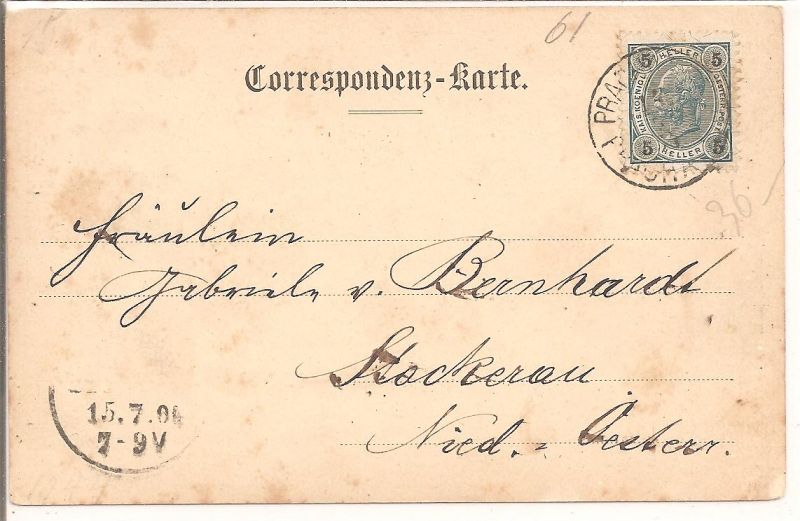 61
Correspondenz-Karte.
5 HELLER 5
KAIS. KOENIGL. OESTERR. POST.
5 HELLER 5
36
Fräulein
Gabriele v. Bernhardt
Stockerau
Nied.=Oesterr.
15.7.04
7-9V